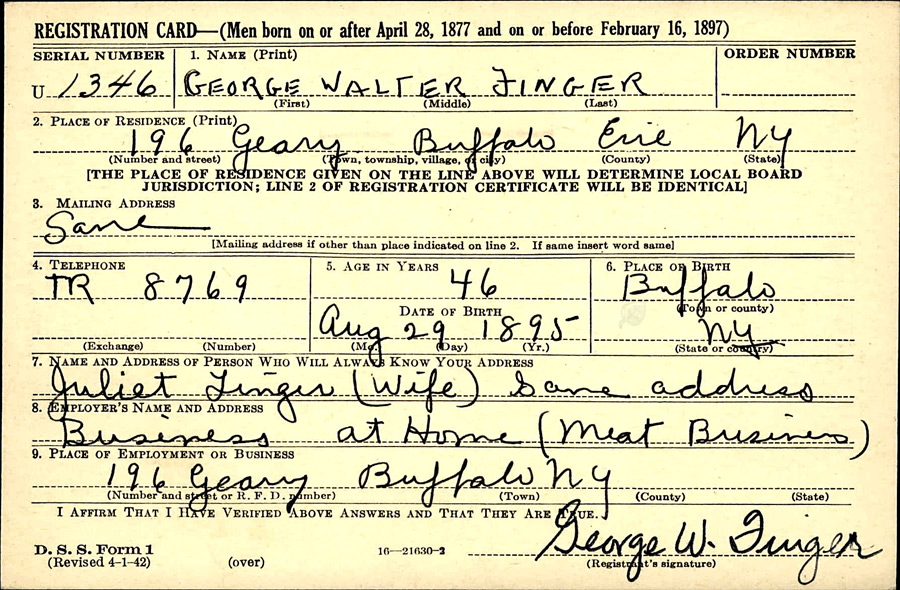 REGISTRATION CARD—(Men born on or after April 28, 1877 and on or before February 16, 1897)
SERIAL NUMBER 1. NAME (Print) ORDER NUMBER
U 1346 GEORGE WALTER FINGER
(First) (Middle) (Last)
2. PLACE OF RESIDENCE (Print)
196 Geary Buffalo Erie NY
(Number and street) (Town, township, village, or city) (County) (State)
[THE PLACE OF RESIDENCE GIVEN ON THE LINE ABOVE WILL DETERMINE LOCAL BOARD
JURISDICTION; LINE 2 OF REGISTRATION CERTIFICATE WILL BE IDENTICAL]
3. MAILING ADDRESS
Same
[Mailing address if other than place indicated on line 2. If same insert word same]
4. TELEPHONE 5. AGE IN YEARS 6. PLACE OF BIRTH
TR 8769 46 Buffalo
(Town or county)
DATE OF BIRTH
Aug 29 1895 NY
(Exchange) (Number) (Mo.) (Day) (Yr.) (State or country)
7. NAME AND ADDRESS OF PERSON WHO WILL ALWAYS KNOW YOUR ADDRESS
Juliet Finger (Wife) Same address
8. EMPLOYER'S NAME AND ADDRESS
Business at Home (Meat Business)
9. PLACE OF EMPLOYMENT OR BUSINESS
196 Geary Buffalo NY
(Number and street or R. F. D. number) (Town) (County) (State)
I AFFIRM THAT I HAVE VERIFIED ABOVE ANSWERS AND THAT THEY ARE TRUE.
George W. Finger
D. S. S. Form 1 16—21630-2
(Revised 4-1-42) (over) (Registrant's signature)